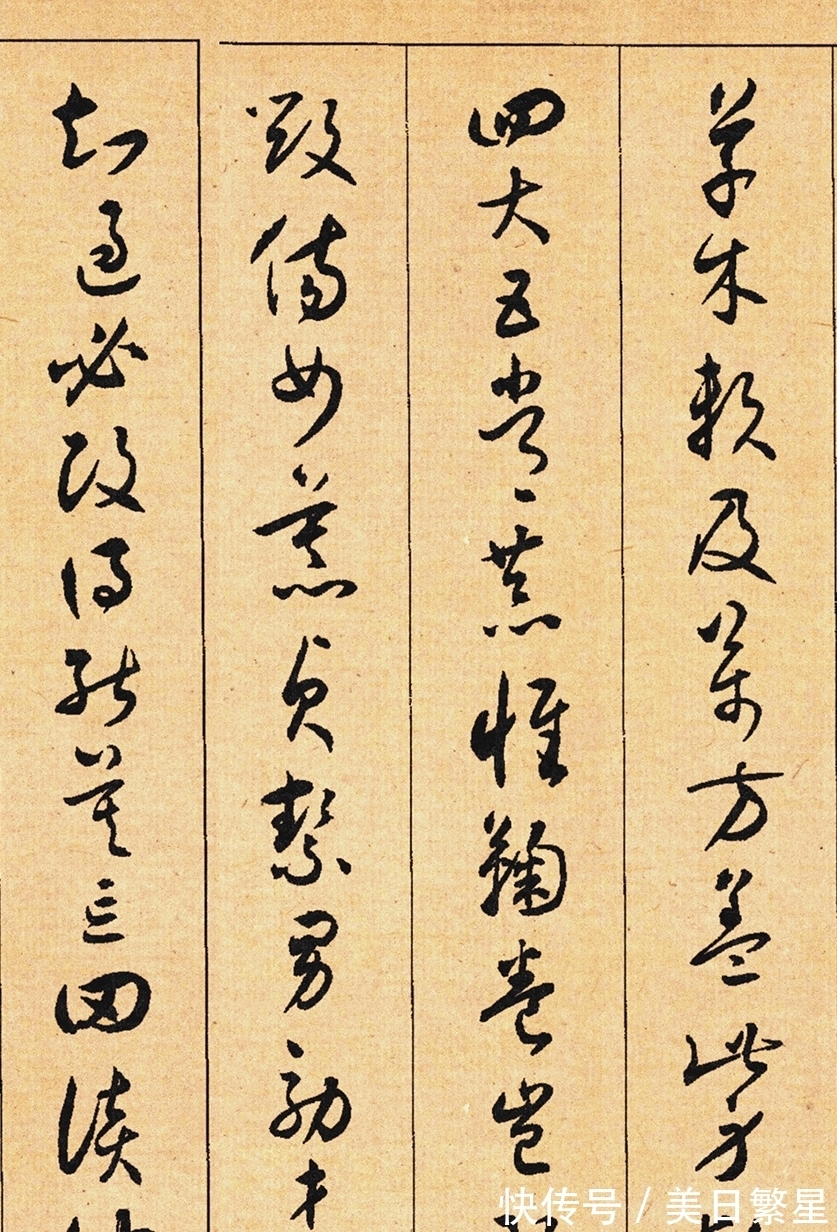 草木賴及萬方蓋此身
四大五常恭惟鞠養豈
毀傷女慕貞絜男効才
知過必改得能莫忘罔談
快传号 / 美日繁星